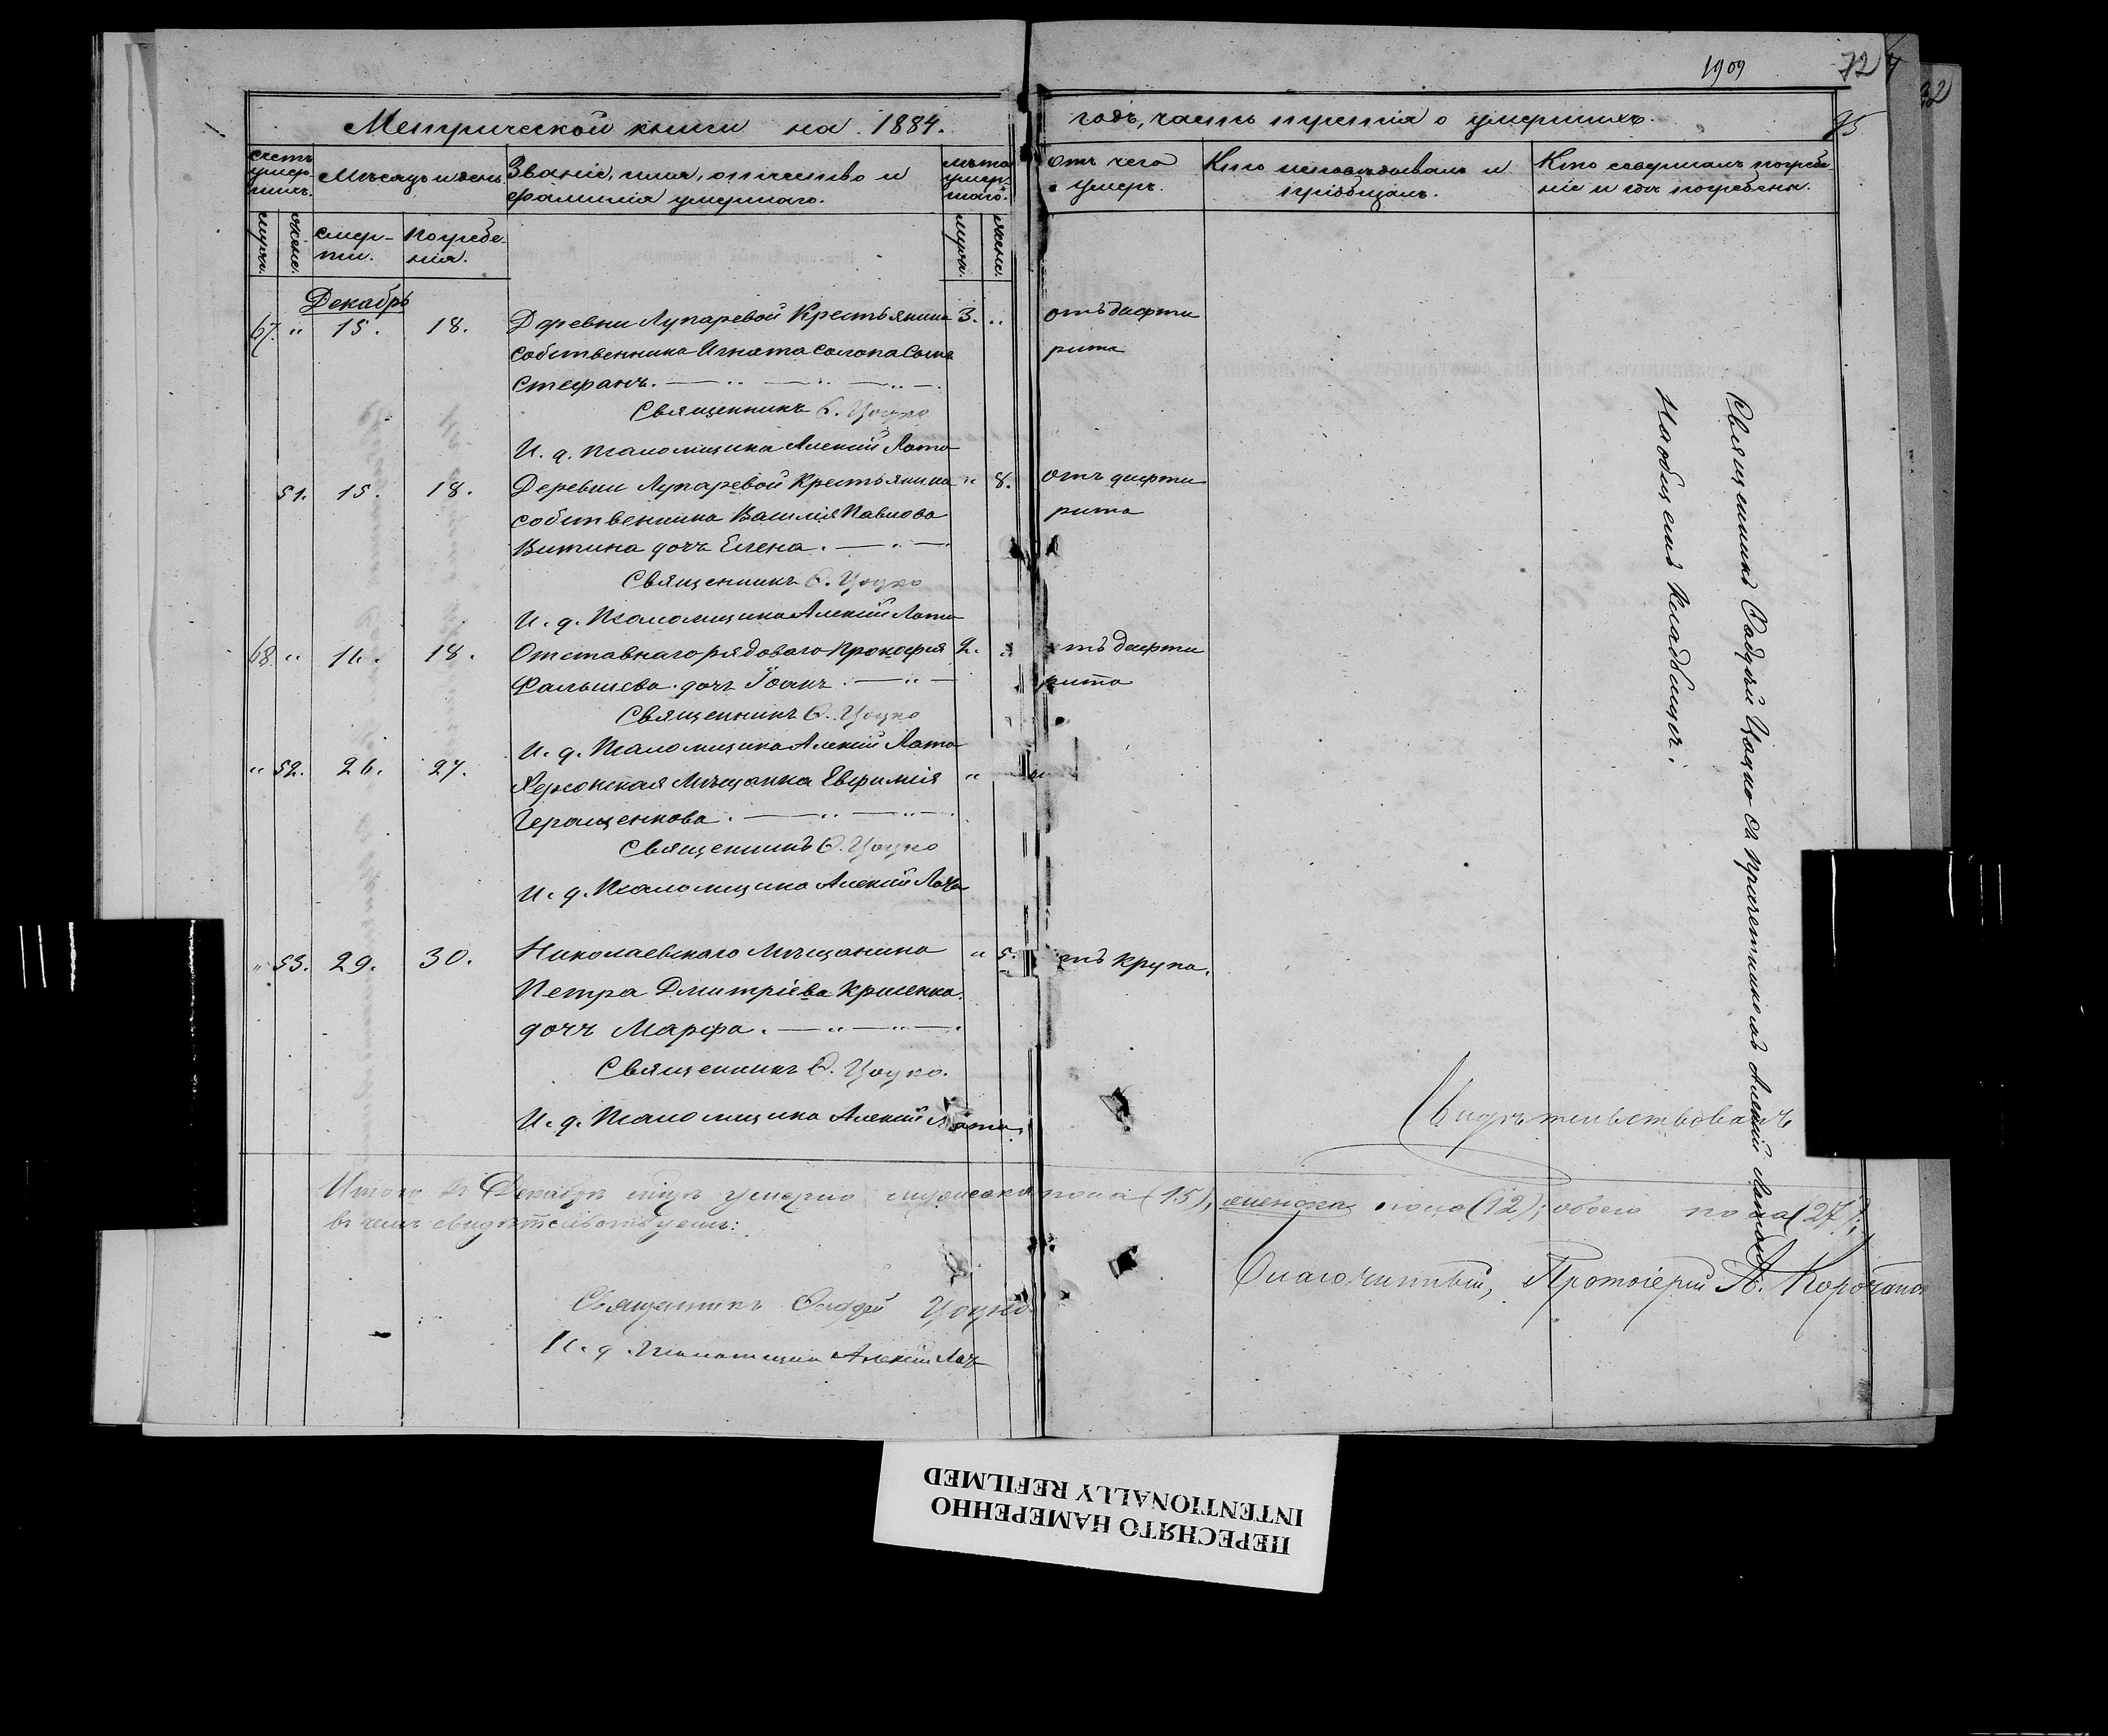 1909
72
32
Метрической книги на 1884.
годъ, часть третія о умершихъ.
75
Счетъ умер-шихъ.
Мѣсяцъ и день.
Званіе, имя, отчество и фамилія умершаго.
лѣта умер-шаго.
отъ чего умеръ.
Кто исповѣдывалъ и пріобщалъ.
Кто совершалъ погребе-ніе и гдѣ погребены.
муж.
женс.
смер-ти.
погребе-нія.
мужа.
женс.
Декабрь
67. " 15. 18. Деревни Лупаревой Крестьянина 3. " отъ дифте
собственника Игната Сына рита
Стефанъ.
Священникъ Ѳ. Цоцко
И. д. Псаломщика Алексій
51. 15. 18. Деревни Лупаревой Крестьянина " 8. отъ дифте
собственника Василія Павлова рита
Витина дочь Елена.
Священникъ Ѳ. Цоцко
И. д. Псаломщика Алексій
68. " 16. 18. Отставнаго рядоваго Прокофія 2. " отъ дифте
Фалышева дочь Іоанъ. рита
Священникъ Ѳ. Цоцко
И. д. Псаломщика Алексій
" 52. 26. 27. Херсонская Мѣщанка Евфимія "
Геращенкова.
Священникъ Ѳ. Цоцко
И. д. Псаломщика Алексій
" 53. 29. 30. Николаевскаго Мѣщанина " 5. отъ крупа.
Петра Дмитріева
дочь Марфа.
Священникъ Ѳ. Цоцко.
И. д. Псаломщика Алексій
Священникъ Ѳаддей Цоцко съ причетникомъ Алексій
На общемъ Кладбищѣ.
Свидѣтельствовалъ
Итого въ Декабрѣ умерло мужеска пола (15), женска пола (12); обоего пола (27);
въ чемъ свидѣтельствуемъ:
Благочинный, Протоіерей
Священникъ Ѳаддей Цоцко
И. д. Псаломщика Алексій
ПЕРЕСНЯТО НАМЕРЕННО
INTENTIONALLY REFILMED